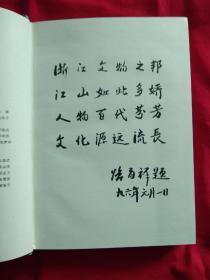 浙江文物之邦
江山如此多嬌
人物百代芬芳
文化源远流長
题
九六年元月一日